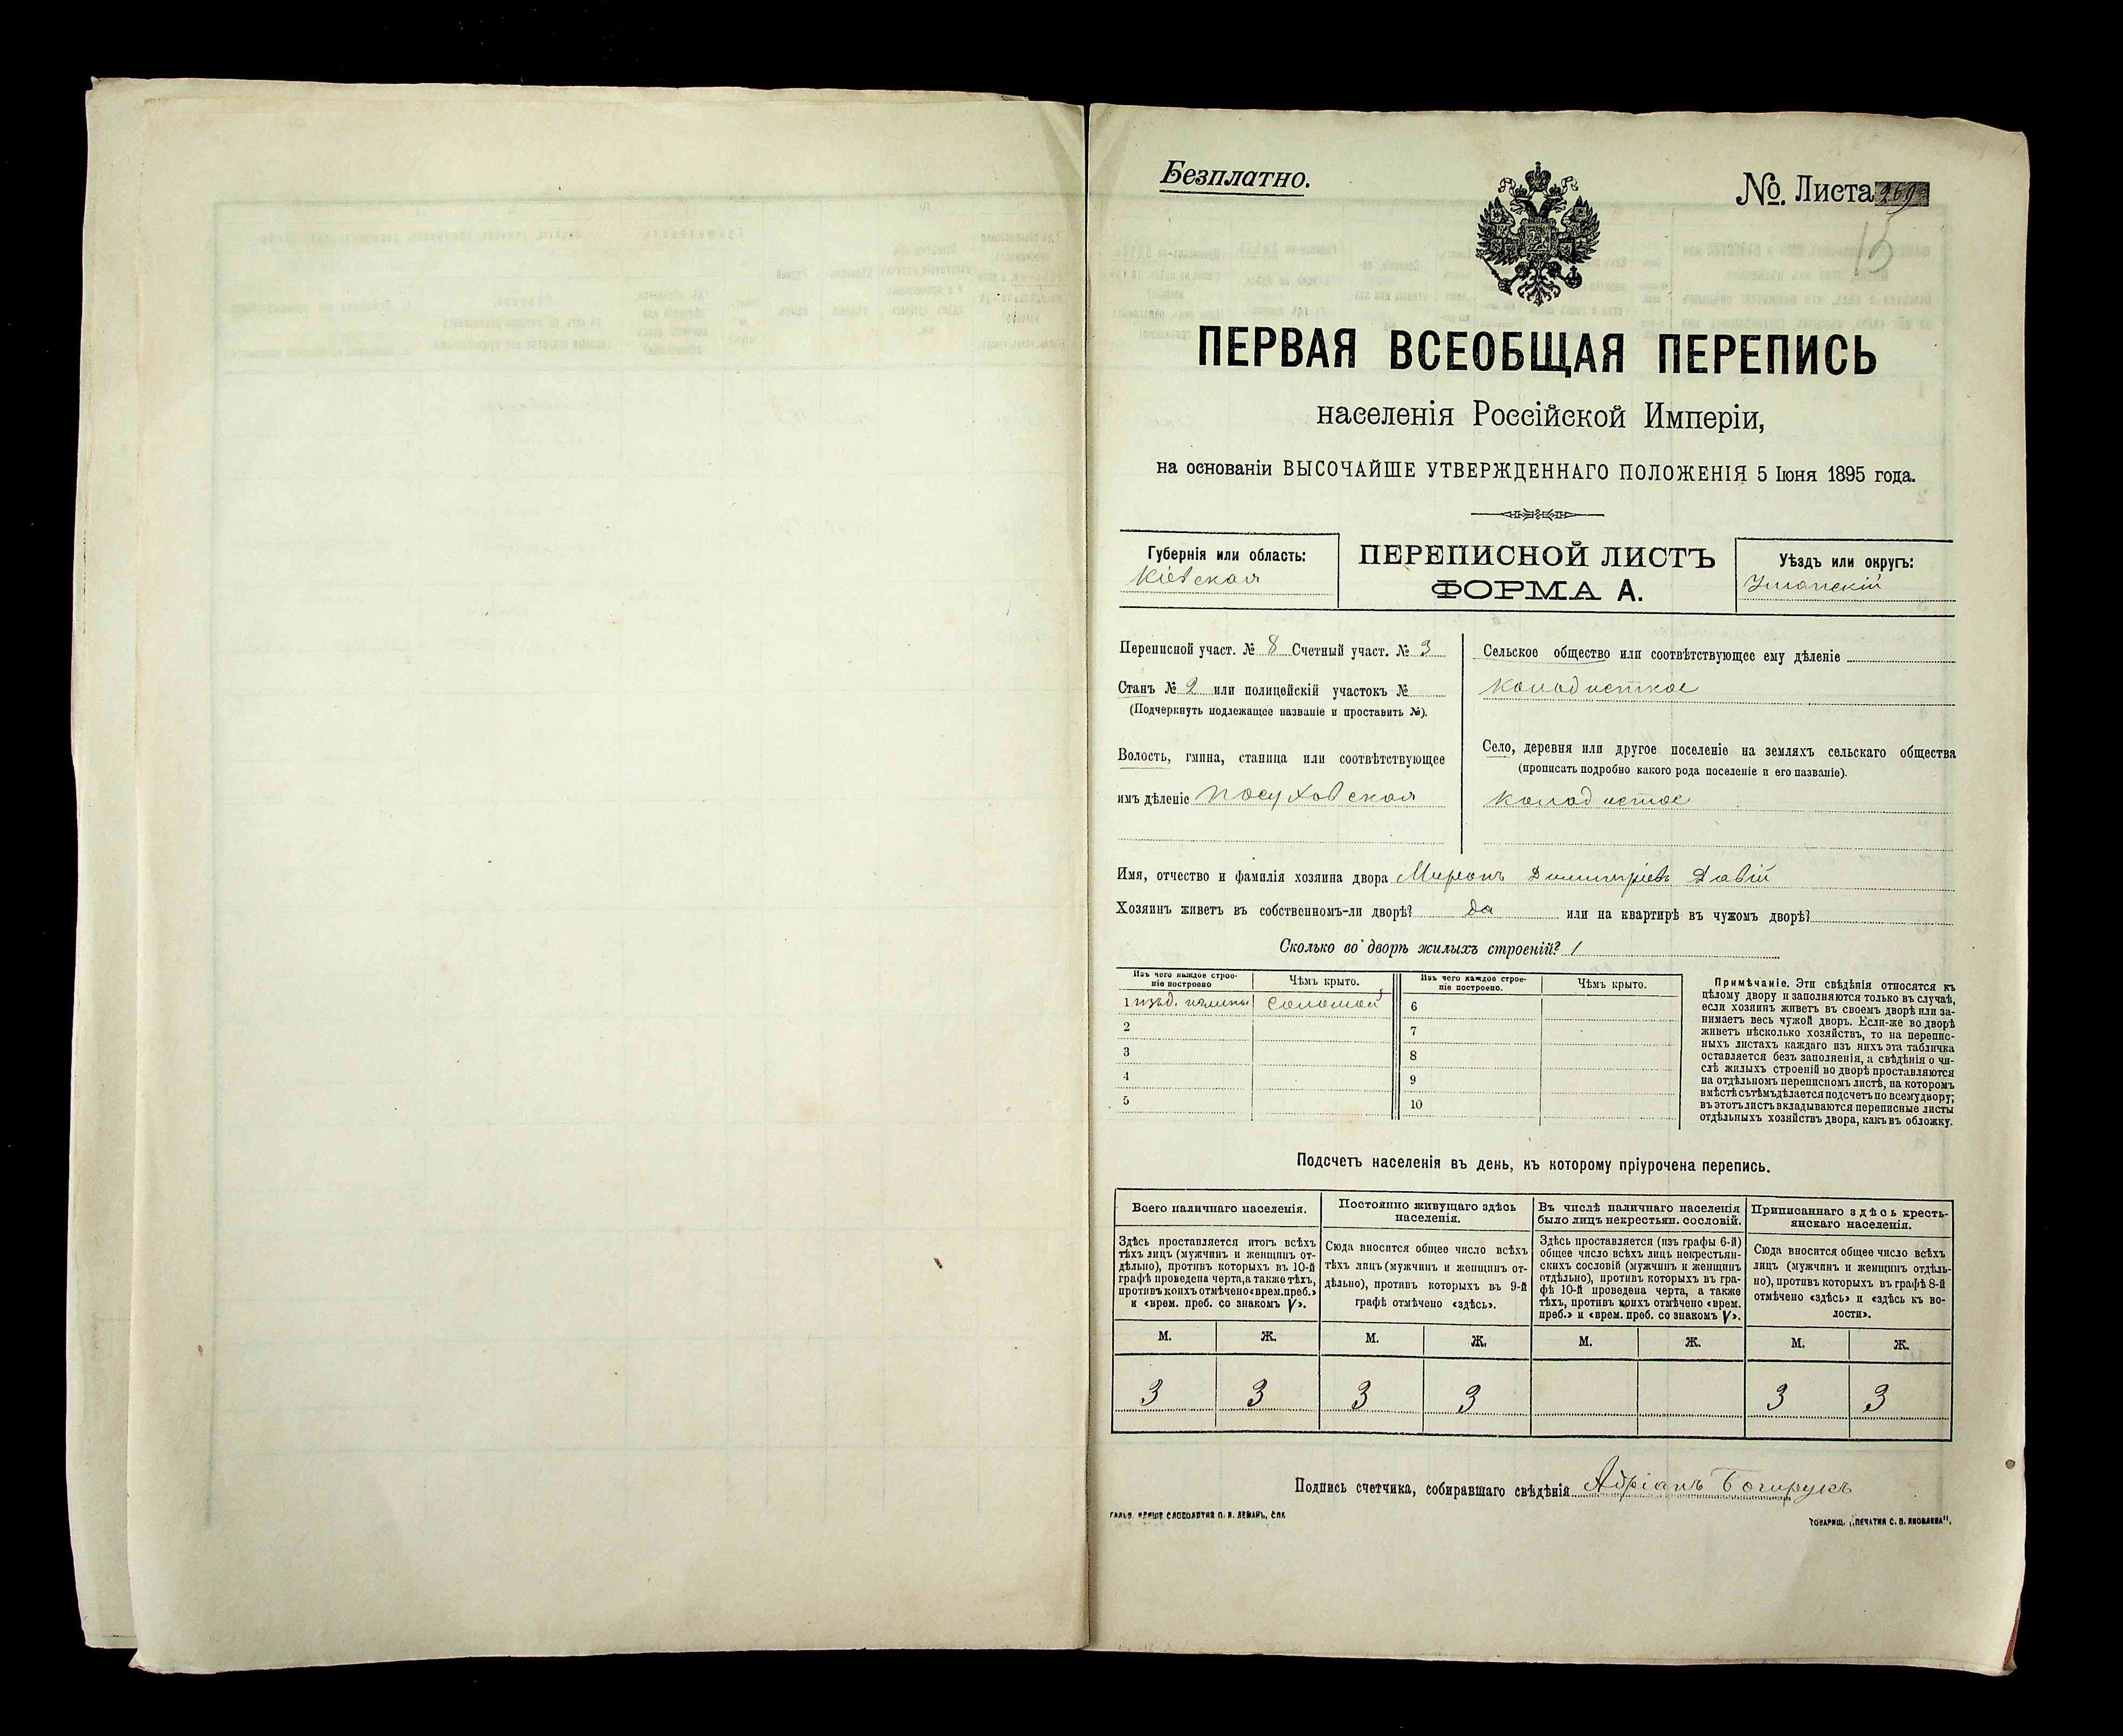 Безплатно.
№. Листа 269
13
ПЕРВАЯ ВСЕОБЩАЯ ПЕРЕПИСЬ
населенія Россійской Имперіи,
на основаніи ВЫСОЧАЙШЕ УТВЕРЖДЕННАГО ПОЛОЖЕНІЯ 5 Іюня 1895 года.
Губернія или область:
Кіевская
ПЕРЕПИСНОЙ ЛИСТЪ
ФОРМА А.
Уѣздъ или округъ:
Уманскій
Переписной участ. № 8 Счетный участ. № 3
Станъ № 2 или полицейскій участокъ №
(Подчеркнуть подлежащее названіе и проставить №).
Волость, гмина, станица или соотвѣтствующее
имъ дѣленіе Посуховская
Сельское общество или соотвѣтствующее ему дѣленіе
Колодисткое
Село, деревня или другое поселеніе на земляхъ сельскаго общества
(прописать подробно какого рода поселеніе и его названіе).
Колодистое
Имя, отчество и фамилія хозяина двора Миронъ Димитріевъ Давій
Хозяинъ живетъ въ собственномъ-ли дворѣ? да или на квартирѣ въ чужомъ дворѣ?
Сколько во дворѣ жилыхъ строеній? 1
Изъ чего каждое строе-
ніе построено
Чѣмъ крыто.
Изъ чего каждое строе-
ніе построено.
Чѣмъ крыто.
1 изъ д. Соломой 6
2 7
3 8
4 9
5 10
Примѣчаніе. Эти свѣдѣнія относятся къ
цѣлому двору и заполняются только въ случаѣ,
если хозяинъ живетъ въ своемъ дворѣ или за-
нимаетъ весь чужой дворъ. Если-же во дворѣ
живетъ нѣсколько хозяйствъ, то на перепис-
ныхъ листахъ каждаго изъ нихъ эта табличка
оставляется безъ заполненія, а свѣдѣнія о чи-
слѣ жилыхъ строеній во дворѣ проставляются
на отдѣльномъ переписномъ листѣ, на которомъ
вмѣстѣ съ тѣмъ дѣлается подсчетъ по всему двору;
въ этотъ листъ вкладываются переписные листы
отдѣльныхъ хозяйствъ двора, какъ въ обложку.
Подсчетъ населенія въ день, къ которому пріурочена перепись.
Всего наличнаго населенія.
Здѣсь проставляется итогъ всѣхъ
тѣхъ лицъ (мужчинъ и женщинъ от-
дѣльно), противъ которыхъ въ 10-й
графѣ проведена черта, а также тѣхъ,
противъ коихъ отмѣчено «врем. преб.»
и «врем. преб. со знакомъ V».
Постоянно живущаго здѣсь
населенія.
Сюда вносится общее число всѣхъ
тѣхъ лицъ (мужчинъ и женщинъ от-
дѣльно), противъ которыхъ въ 9-й
графѣ отмѣчено «здѣсь».
Въ числѣ наличнаго населенія
было лицъ некрестьян. сословій.
Здѣсь проставляется (изъ графы 6-й)
общее число всѣхъ лицъ некрестьян-
скихъ сословій (мужчинъ и женщинъ
отдѣльно), противъ которыхъ въ гра-
фѣ 10-й проведена черта, а также
тѣхъ, противъ коихъ отмѣчено «врем.
преб.» и «врем. преб. со знакомъ V».
Приписаннаго здѣсь кресть-
янскаго населенія.
Сюда вносится общее число всѣхъ
лицъ (мужчинъ и женщинъ отдѣль-
но), противъ которыхъ въ графѣ 8-й
отмѣчено «здѣсь» и «здѣсь къ во-
лости».
М. Ж. М. Ж. М. Ж. М. Ж.
3 3 3 3 3 3
Подпись счетчика, собиравшаго свѣдѣнія Адріанъ Богирукъ
ТОВАРИЩ. „ПЕЧАТНЯ С. П. ЯКОВЛЕВА“.